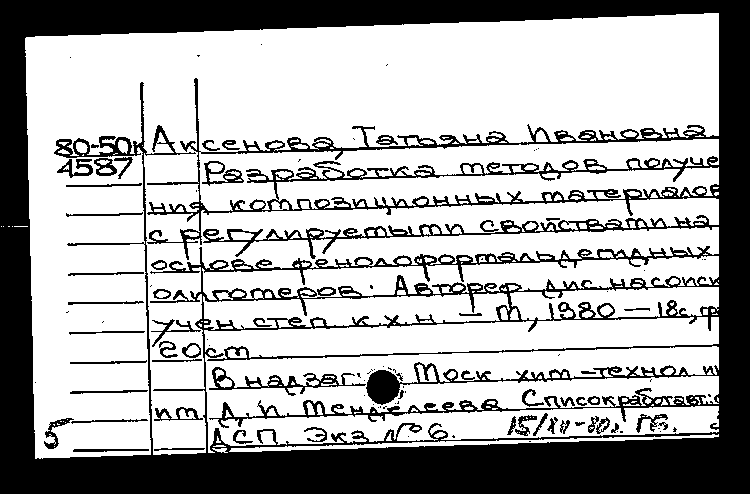 80-50к Аксенова, Татьяна Ивановна.
4587 Разработка методов получе
ния композиционных материалов
с регулируемыми свойствами на
основе фенолоформальдегидных
олигомеров. Автореф. дис. на соиск
учен. степ. к. х. н. — М., 1980 — 18 с., гр
20 см.
В надзаг: Моск. хим-технол. ин
им. Д. И. Менделеева. Список работ авт.:
5 ДСП. Экз № 6. 15/XII-80г. ГБ.